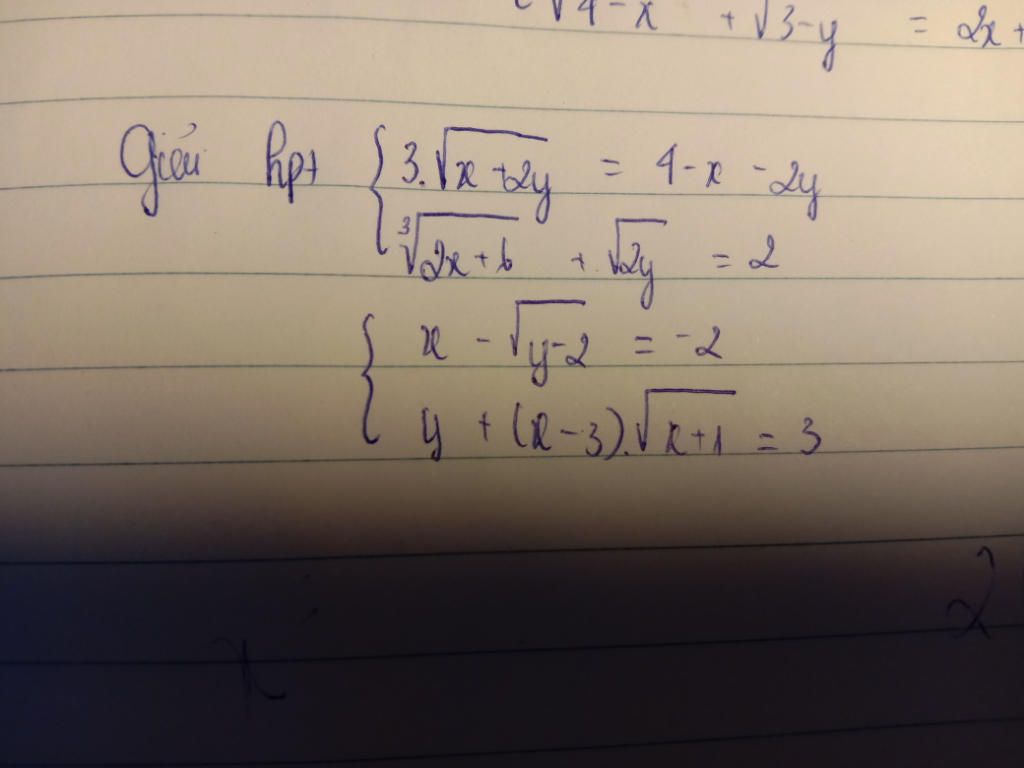 √4-x + √3-y = 2x+
Giải hpt { 3.√x+2y = 4-x-2y
∛2x+6 + √2y = 2
{ x - √y-2 = -2
y + (x-3).√x+1 = 3
x 2